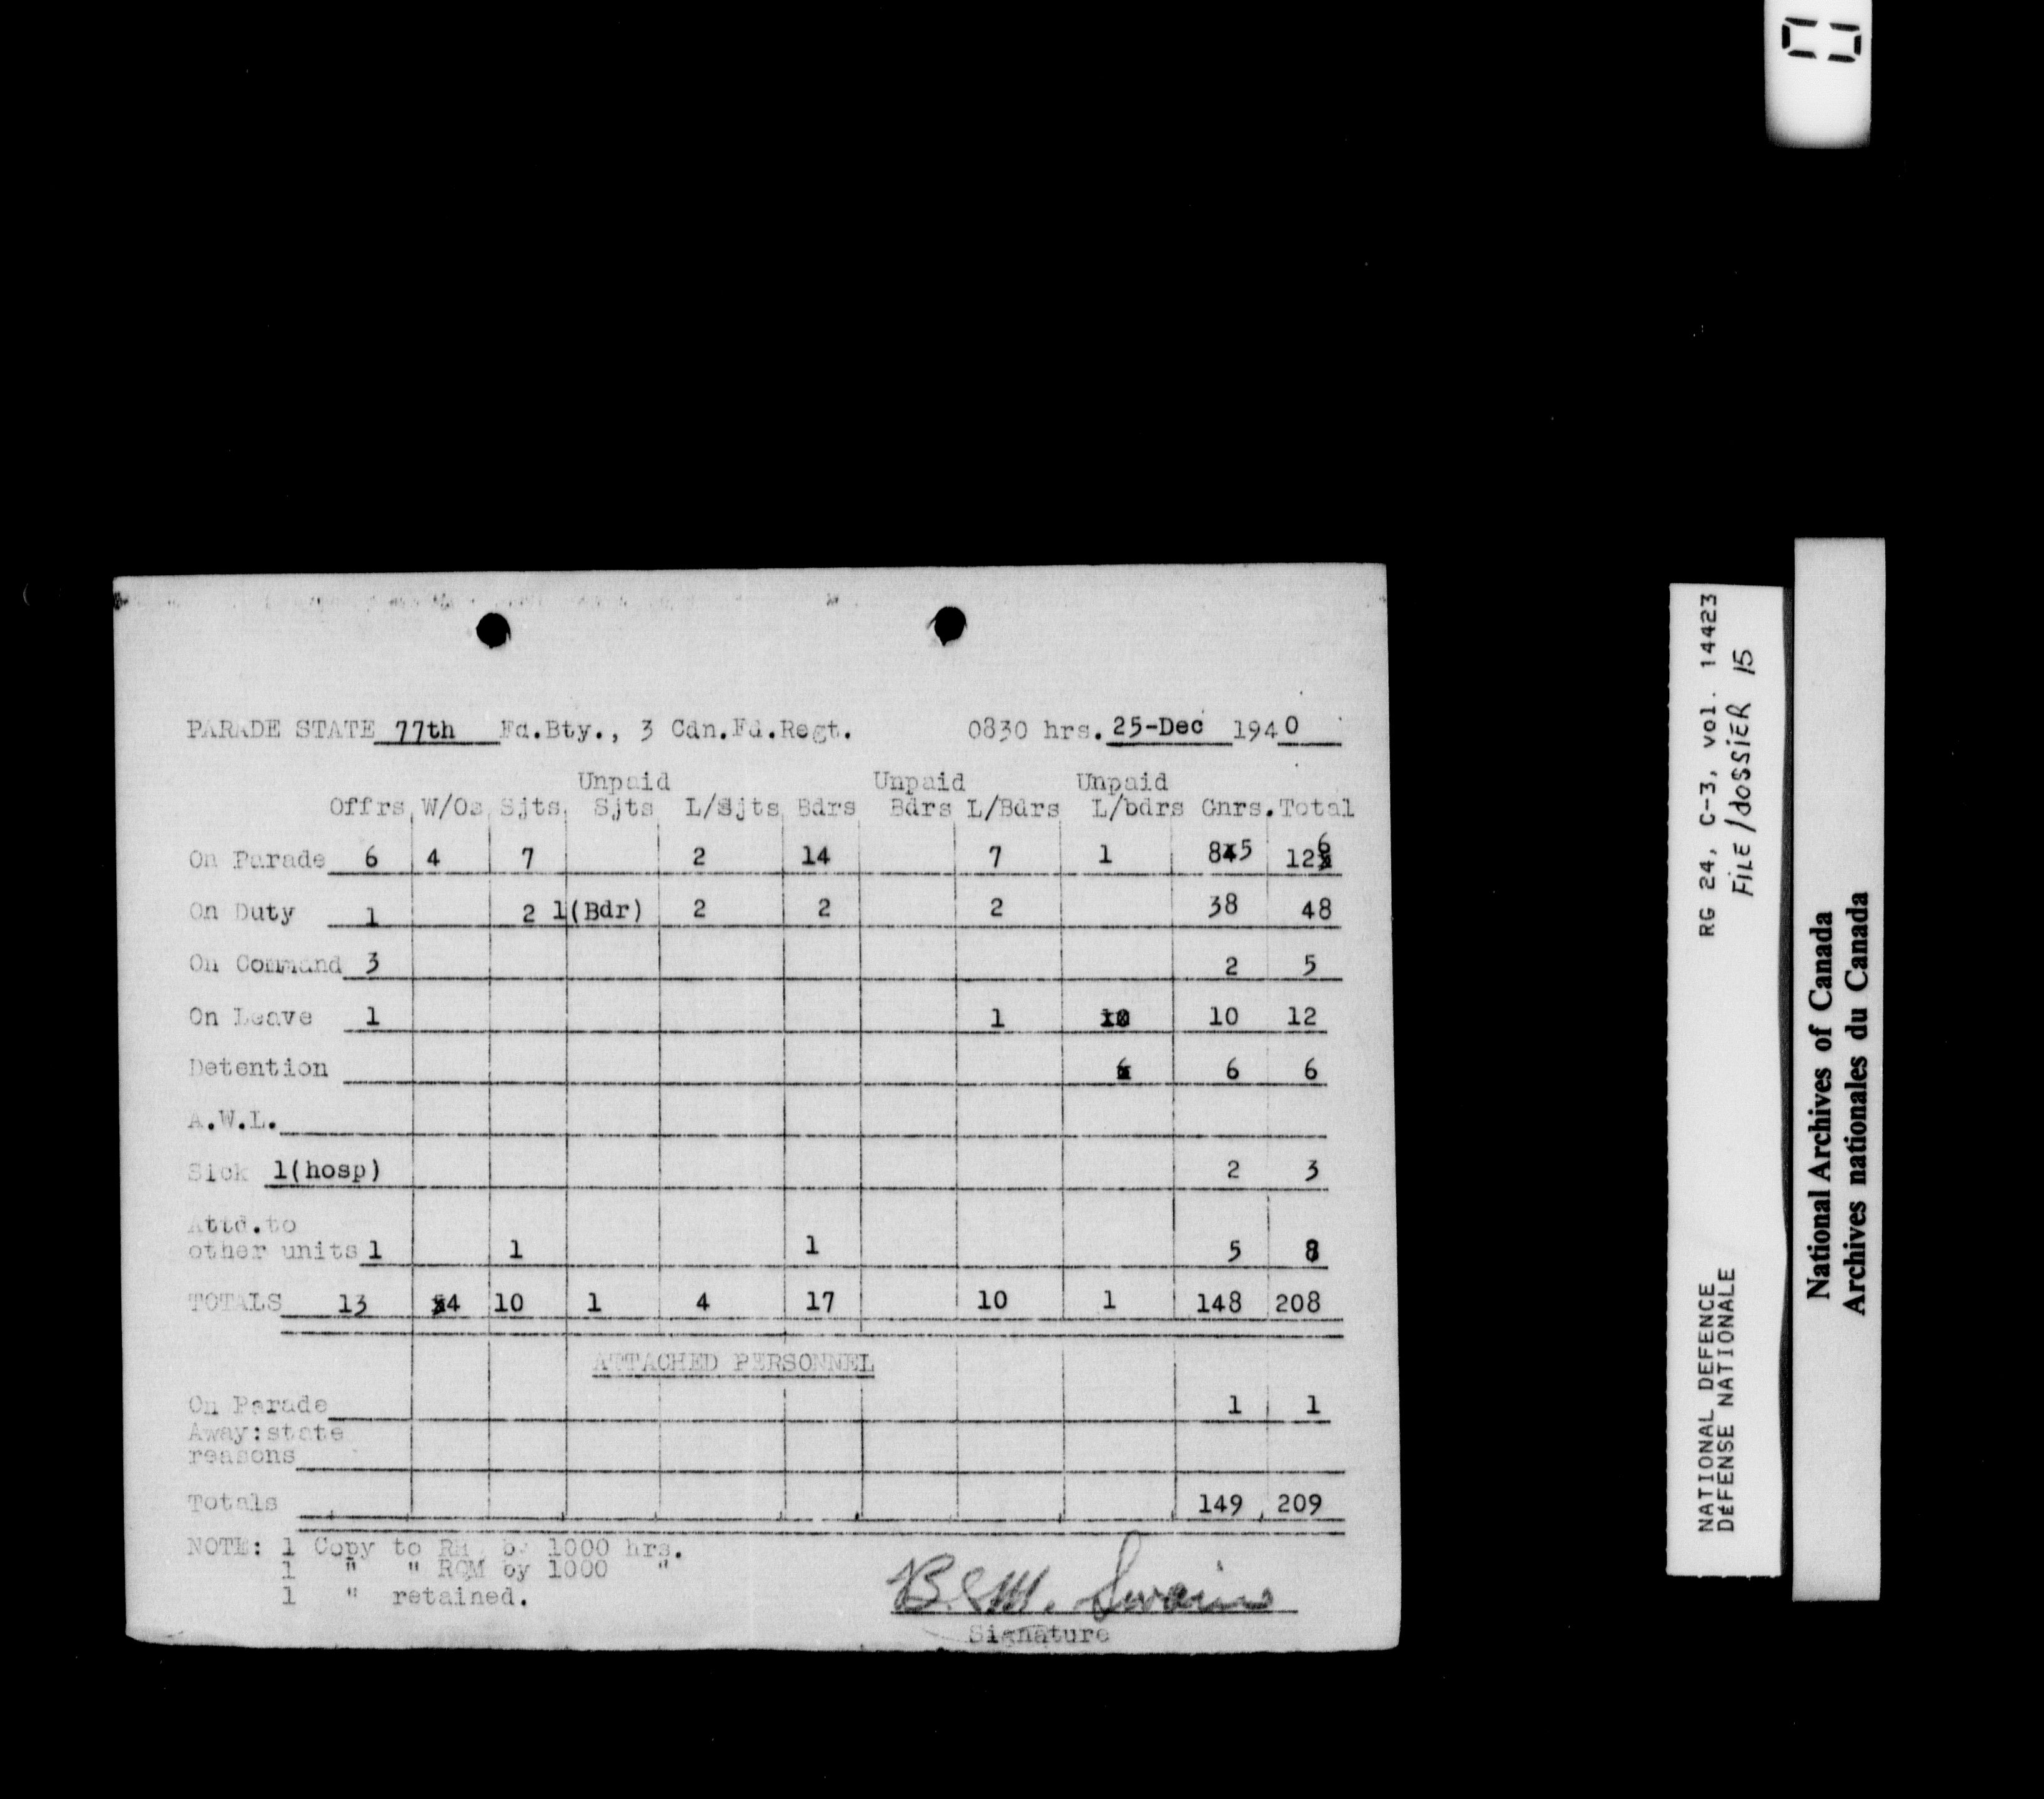 PARADE STATE 77th Fd.Bty., 3 Cdn.Fd.Regt. 0830 hrs. 25-Dec 1940
Unpaid Unpaid Unpaid
Offrs W/Os Sjts Sjts L/Sjts Bdrs Bdrs L/Bdrs L/bdrs Gnrs. Total
On Parade 6 4 7 2 14 7 1 85 126
On Duty 1 2 1(Bdr) 2 2 2 38 48
On Command 3 2 5
On Leave 1 1 10 12
Detention 6 6
A.W.L.
Sick 1(hosp) 2 3
Attd.to
other units 1 1 1 5 8
TOTALS 13 4 10 1 4 17 10 1 148 208
ATTACHED PERSONNEL
On Parade 1 1
Away:state
reasons
Totals 149 209
NOTE: 1 Copy to RH by 1000 hrs.
1 " " RQM by 1000 "
1 " retained.
Swain
Signature
RG 24, C-3, vol. 14423
FILE/DOSSIER 15
NATIONAL DEFENCE
DÉFENSE NATIONALE
National Archives of Canada
Archives nationales du Canada